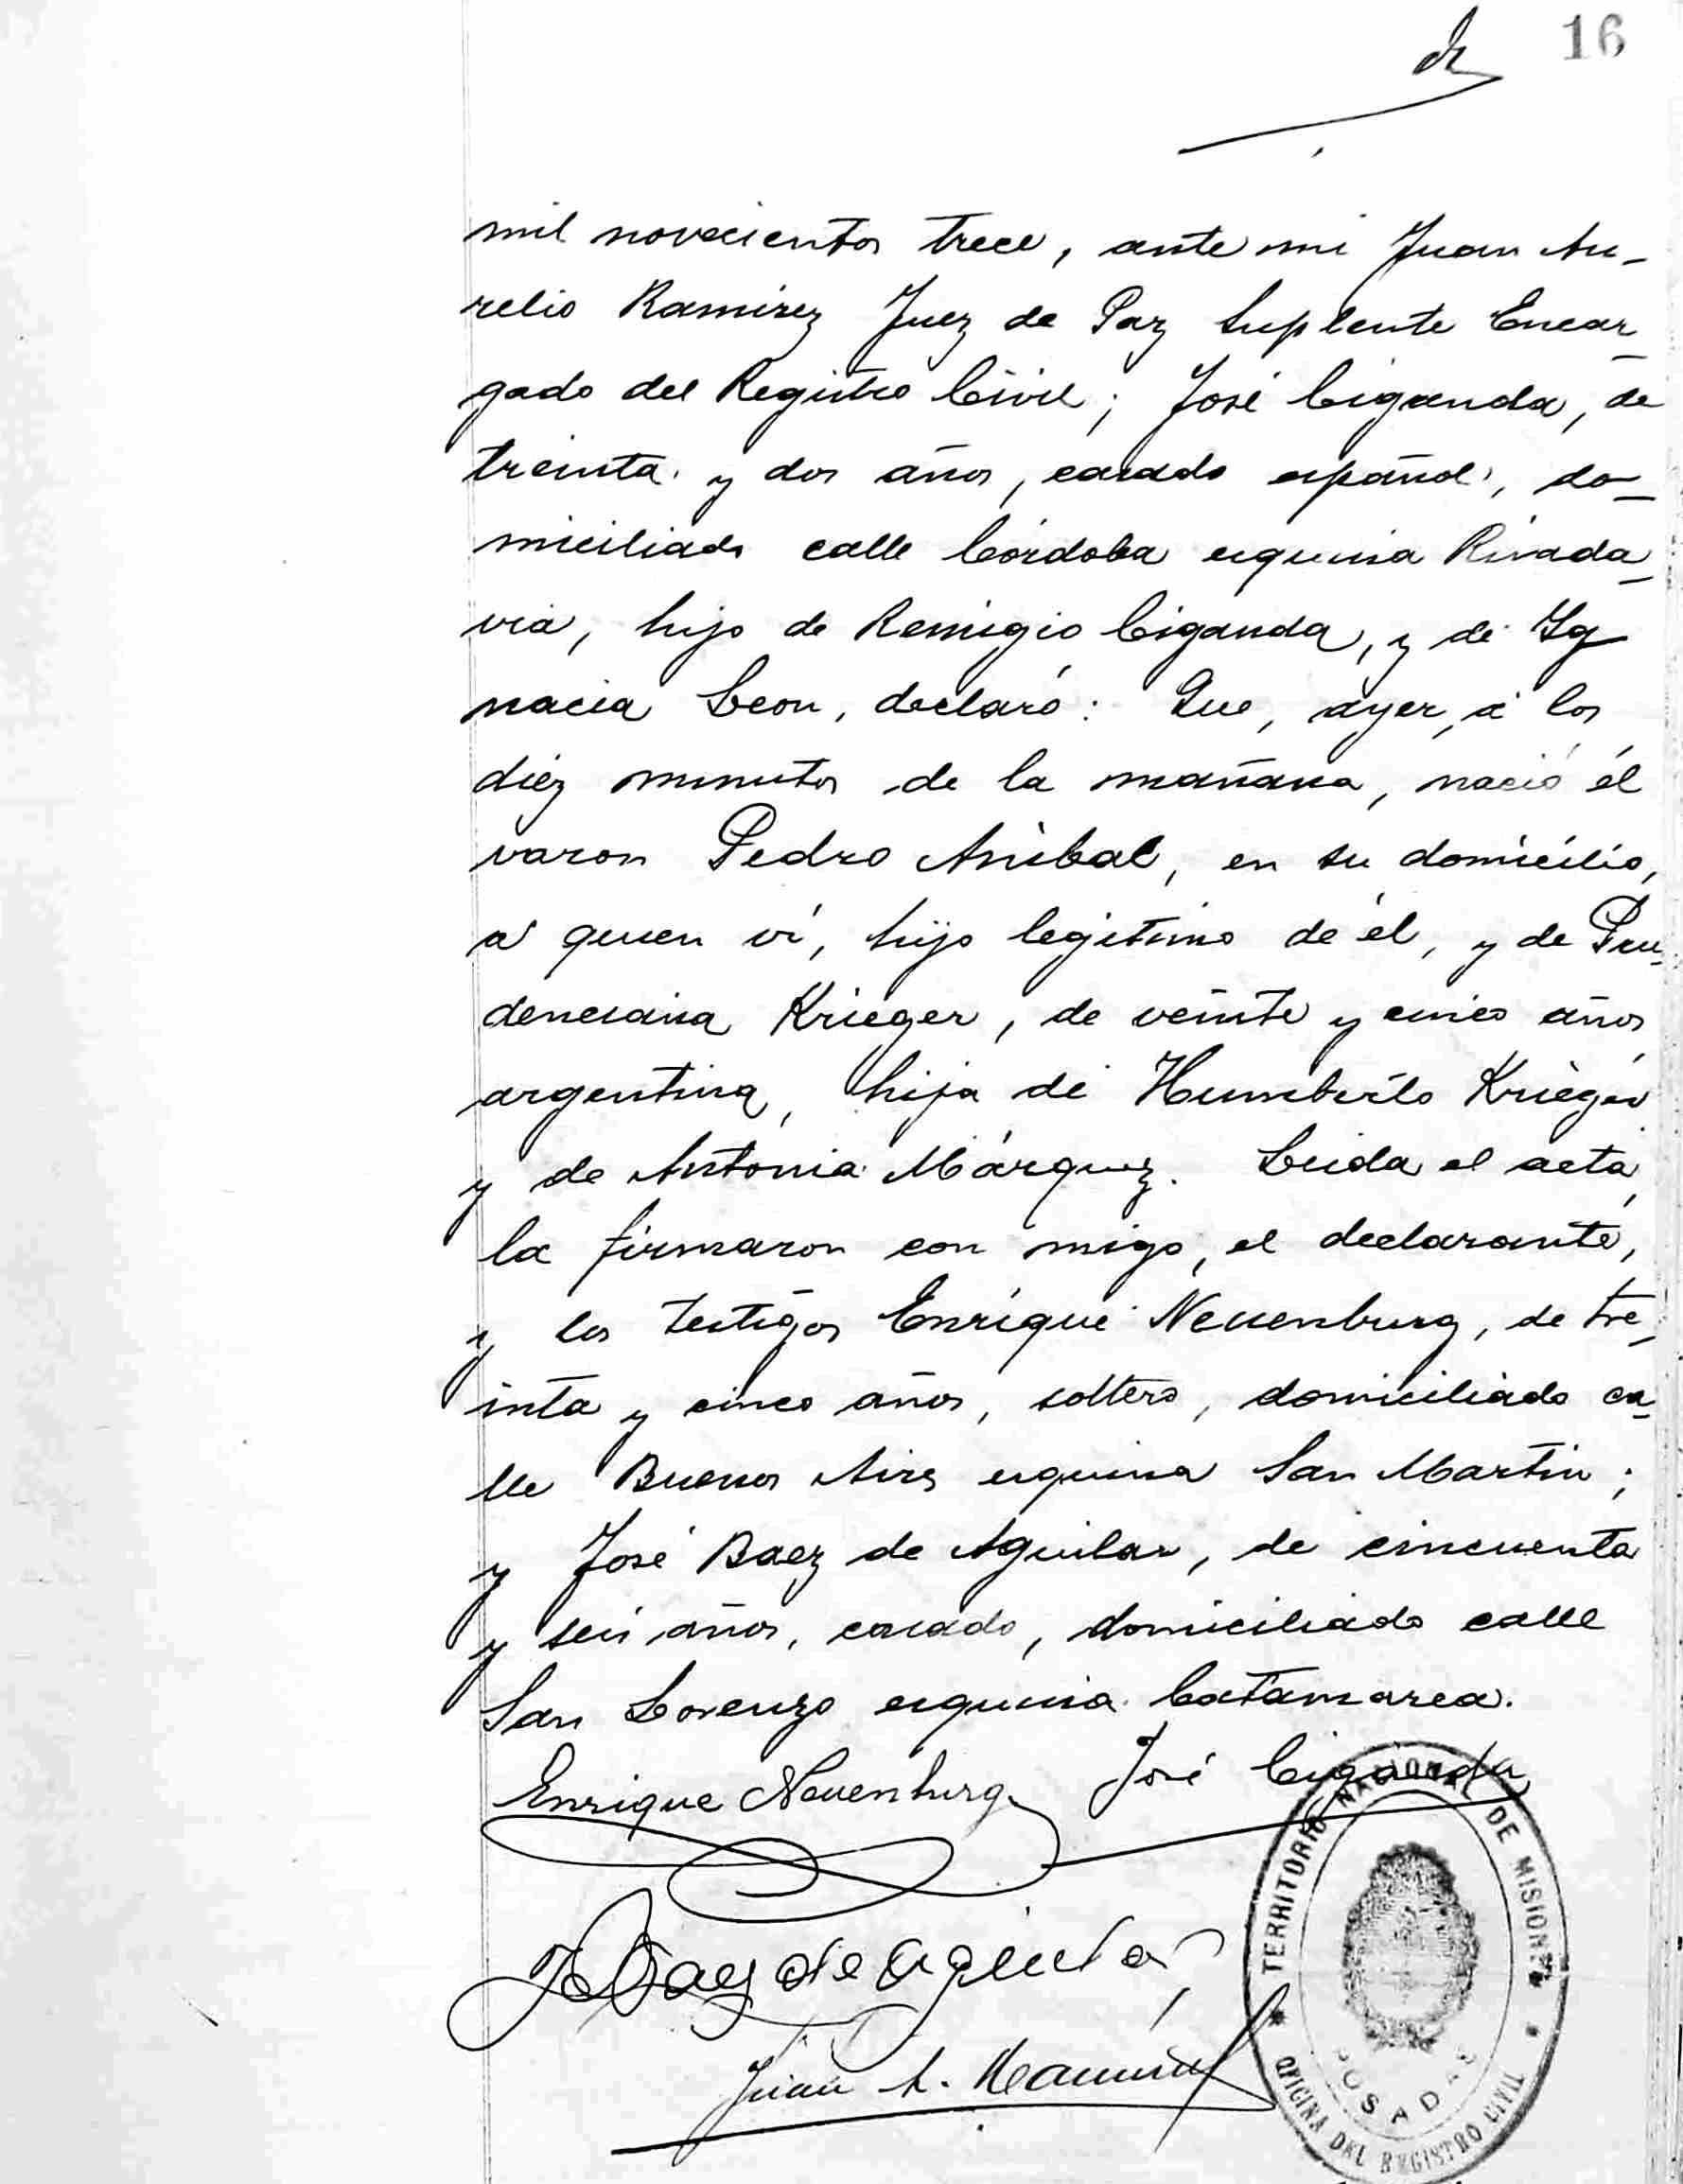 16
mil novecientos trece, ante mi Juan Au-
relio Ramirez Juez de Paz Suplente Encar-
gado del Registro Civil; José Ciganda, de
treinta y dos años, casado español, do-
miciliado calle Córdoba esquina Rivada-
via, hijo de Remigio Ciganda, y de Ig
nacia Leon, declaró: Que, ayer, á los
diéz minutos de la mañana, nació él
varon Pedro Anibal, en su domicilio,
a quien ví, hijo legitimo de él, y de Pru-
denciana Krieger, de veinte y cinco años,
argentina, hija de Humberto Krieger
y de Antonia Márquez. Leida el acta,
la firmaron con migo, el declarante,
y los testigos Enrique Neuenburg, de tre-
inta y cinco años, soltero, domiciliado ca-
lle Buenos Aires esquina San Martin;
y José Baez de Aguilar, de cincuenta
y seis años, casado, domiciliado calle
San Lorenzo esquina Catamarca.
Enrique Neuenburg José Ciganda
J Baez de Aguilar
Juan A. Ramirez
TERRITORIO NACIONAL DE MISIONES
POSADAS
OFICINA DEL REGISTRO CIVIL